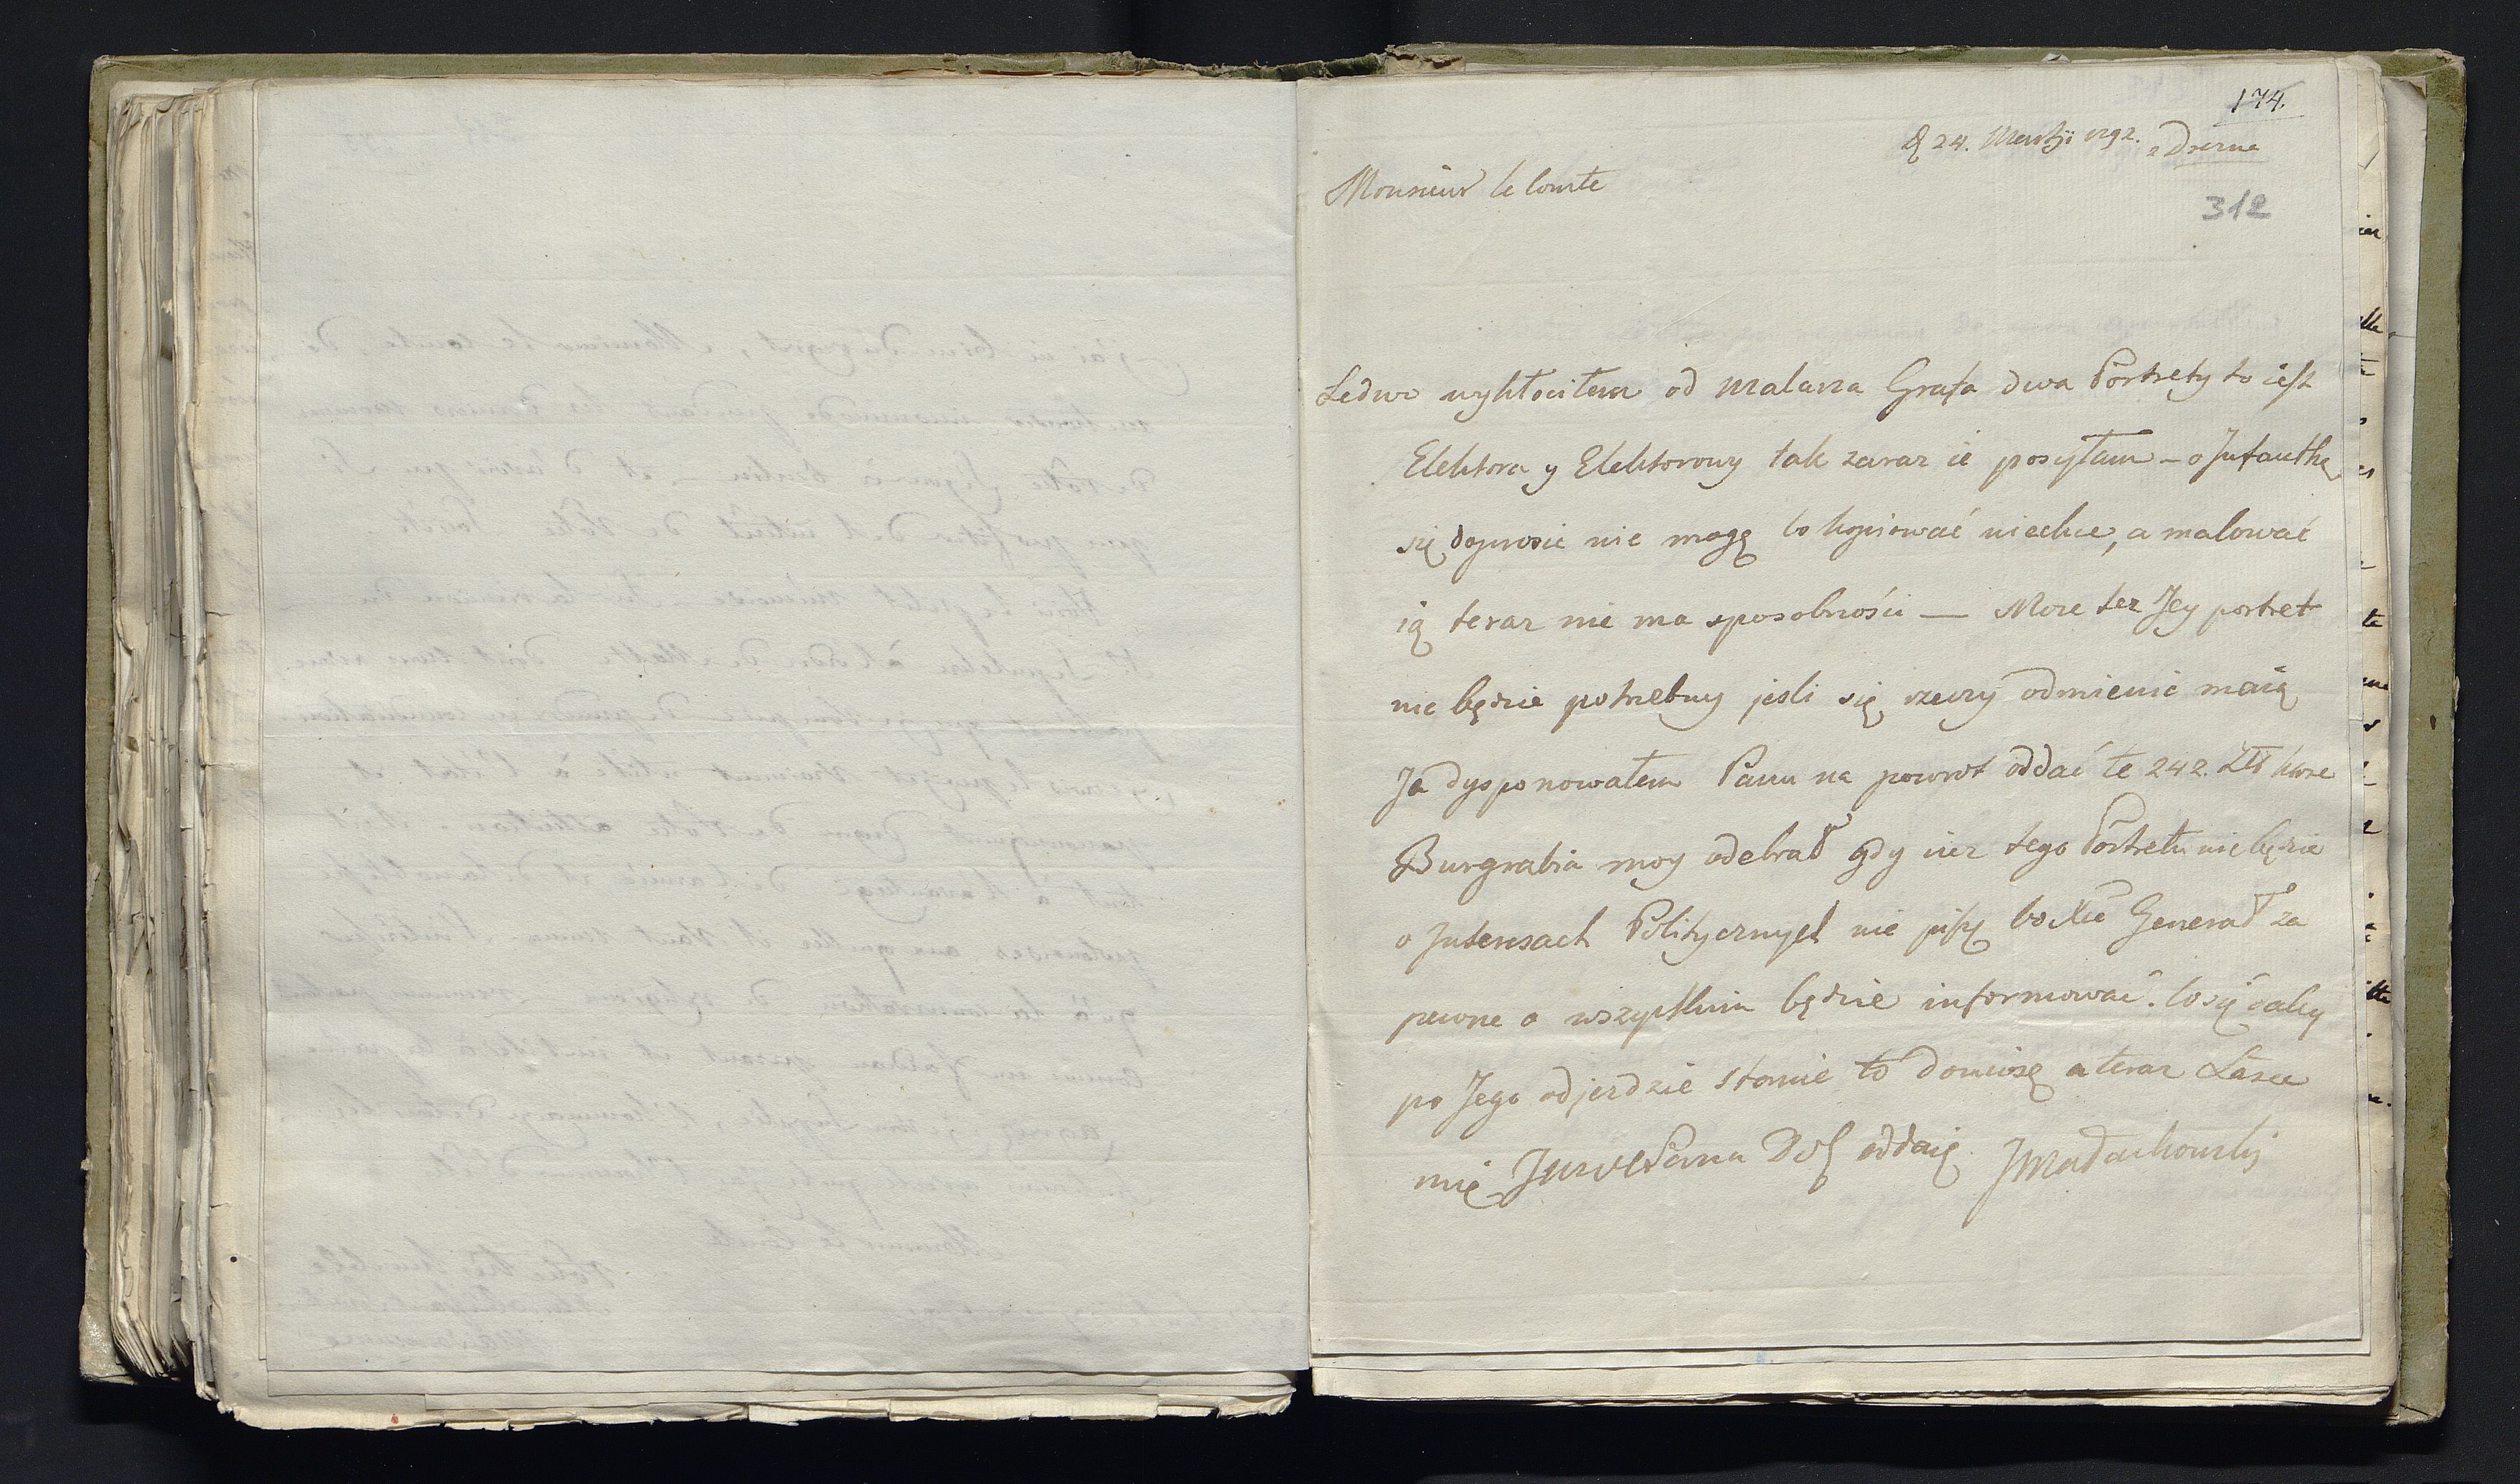 174.
D 24. Martji 1792. z Drezna
Monsieur le Comte
312
Ledwo wykłociłem od Malarza Grafa dwa Portrety to iest
Elektora y Elektorowy tak zaraz ie posyłam – o Infantkę
się doprosić nie mogę bo kopiować niechce, a malować
ią teraz nie ma sposobności — Może też Jey portret
nie będzie potrzebny jeśli się rzeczy odmienić maią
Ja dysponowałem Panu na powrot oddać te 242. Złł ktore
Burgrabia moy odebrał gdy iuż tego Portretu nie będzie
o Interesach Politycznych nie piszę bo Xże Generał za
pewne o wszystkim będzie informować. Co się daley
po Jego odjezdzie stanie to doniosę a teraz Łasce
mię JWWPana Dob oddaię JMałachowski